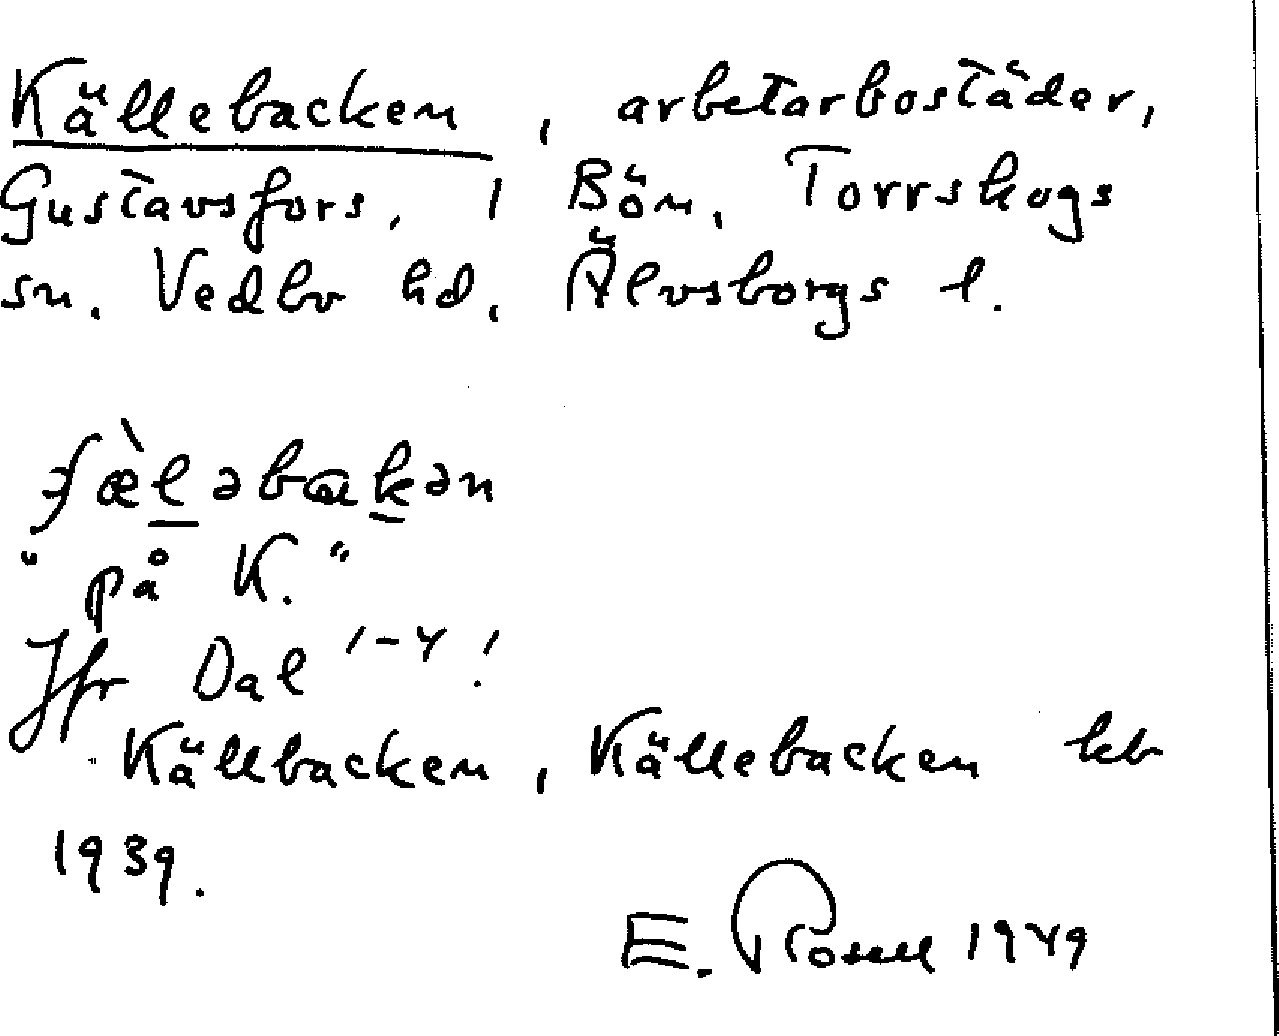 Källebacken, arbetarbostäder,
Gustavsfors, 1 Bön, Torrskogs
sn. Vedbo hd, Älvsborgs l.
"på K."
Jfr Dal 1-4!
Källbacken, Källebacken kb
1939.
E. Rosell 1949